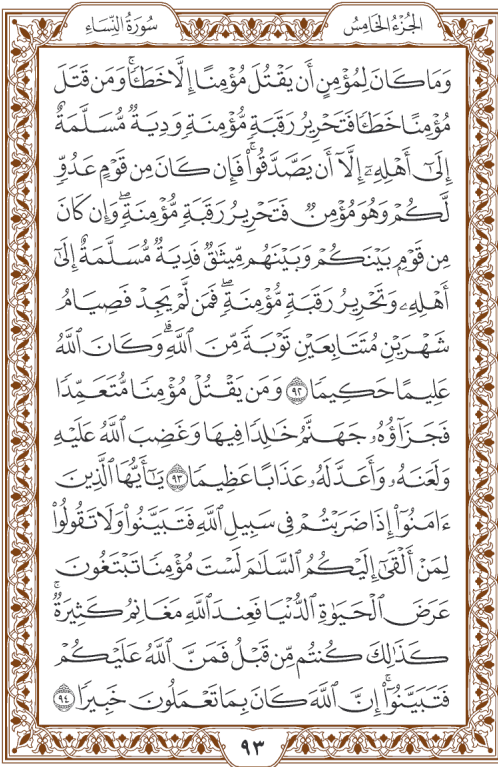 الجُزْءُ الخَامِسُ
سُورَةُ النِّسَاءِ
وَمَا كَانَ لِمُؤْمِنٍ أَن يَقْتُلَ مُؤْمِنًا إِلَّا خَطَـًٔا ۚ وَمَن قَتَلَ
مُؤْمِنًا خَطَـًٔا فَتَحْرِيرُ رَقَبَةٍ مُّؤْمِنَةٍ وَدِيَةٌ مُّسَلَّمَةٌ
إِلَىٰٓ أَهْلِهِۦٓ إِلَّآ أَن يَصَّدَّقُوا۟ ۚ فَإِن كَانَ مِن قَوْمٍ عَدُوٍّ
لَّكُمْ وَهُوَ مُؤْمِنٌ فَتَحْرِيرُ رَقَبَةٍ مُّؤْمِنَةٍ ۖ وَإِن كَانَ
مِن قَوْمٍۭ بَيْنَكُمْ وَبَيْنَهُم مِّيثَـٰقٌ فَدِيَةٌ مُّسَلَّمَةٌ إِلَىٰٓ
أَهْلِهِۦ وَتَحْرِيرُ رَقَبَةٍ مُّؤْمِنَةٍ ۖ فَمَن لَّمْ يَجِدْ فَصِيَامُ
شَهْرَيْنِ مُتَتَابِعَيْنِ تَوْبَةً مِّنَ ٱللَّهِ ۗ وَكَانَ ٱللَّهُ
عَلِيمًا حَكِيمًا ۝٩٢ وَمَن يَقْتُلْ مُؤْمِنًا مُّتَعَمِّدًا
فَجَزَآؤُهُۥ جَهَنَّمُ خَـٰلِدًا فِيهَا وَغَضِبَ ٱللَّهُ عَلَيْهِ
وَلَعَنَهُۥ وَأَعَدَّ لَهُۥ عَذَابًا عَظِيمًا ۝٩٣ يَـٰٓأَيُّهَا ٱلَّذِينَ
ءَامَنُوٓا۟ إِذَا ضَرَبْتُمْ فِى سَبِيلِ ٱللَّهِ فَتَبَيَّنُوا۟ وَلَا تَقُولُوا۟
لِمَنْ أَلْقَىٰٓ إِلَيْكُمُ ٱلسَّلَـٰمَ لَسْتَ مُؤْمِنًا تَبْتَغُونَ
عَرَضَ ٱلْحَيَوٰةِ ٱلدُّنْيَا فَعِندَ ٱللَّهِ مَغَانِمُ كَثِيرَةٌ ۚ
كَذَٰلِكَ كُنتُم مِّن قَبْلُ فَمَنَّ ٱللَّهُ عَلَيْكُمْ
فَتَبَيَّنُوٓا۟ ۚ إِنَّ ٱللَّهَ كَانَ بِمَا تَعْمَلُونَ خَبِيرًا ۝٩٤
٩٣